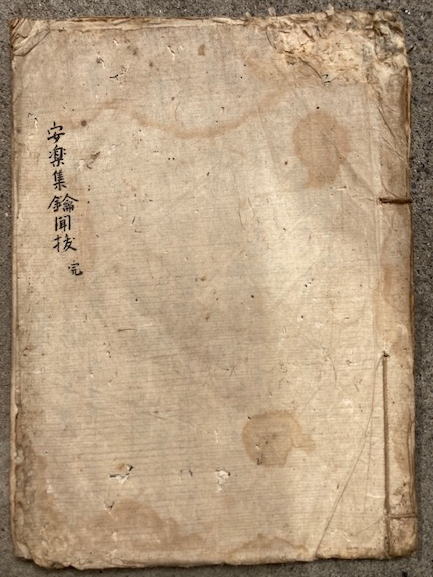 安楽集鑰聞抜 完